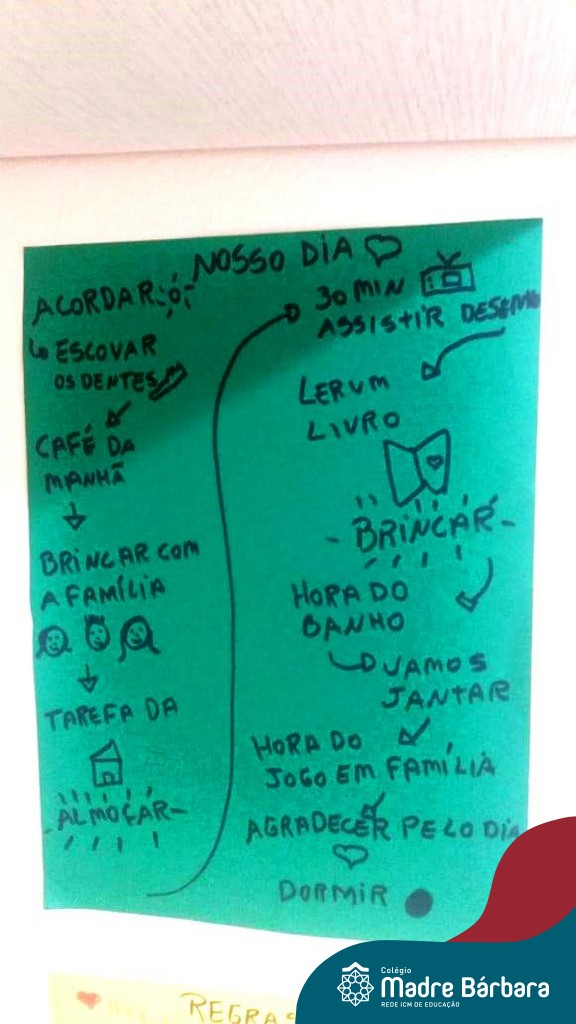 NOSSO DIA
ACORDAR
ESCOVAR
OS DENTES
CAFÉ DA
MANHÃ
BRINCAR COM
A FAMÍLIA
TAREFA DA
ALMOÇAR
30 MIN
ASSISTIR DESENHO
LER UM
LIVRO
BRINCAR
HORA DO
BANHO
VAMOS
JANTAR
HORA DO
JOGO EM FAMÍLIA
AGRADECER PELO DIA
DORMIR
REGRAS
Colégio
Madre Bárbara
REDE ICM DE EDUCAÇÃO